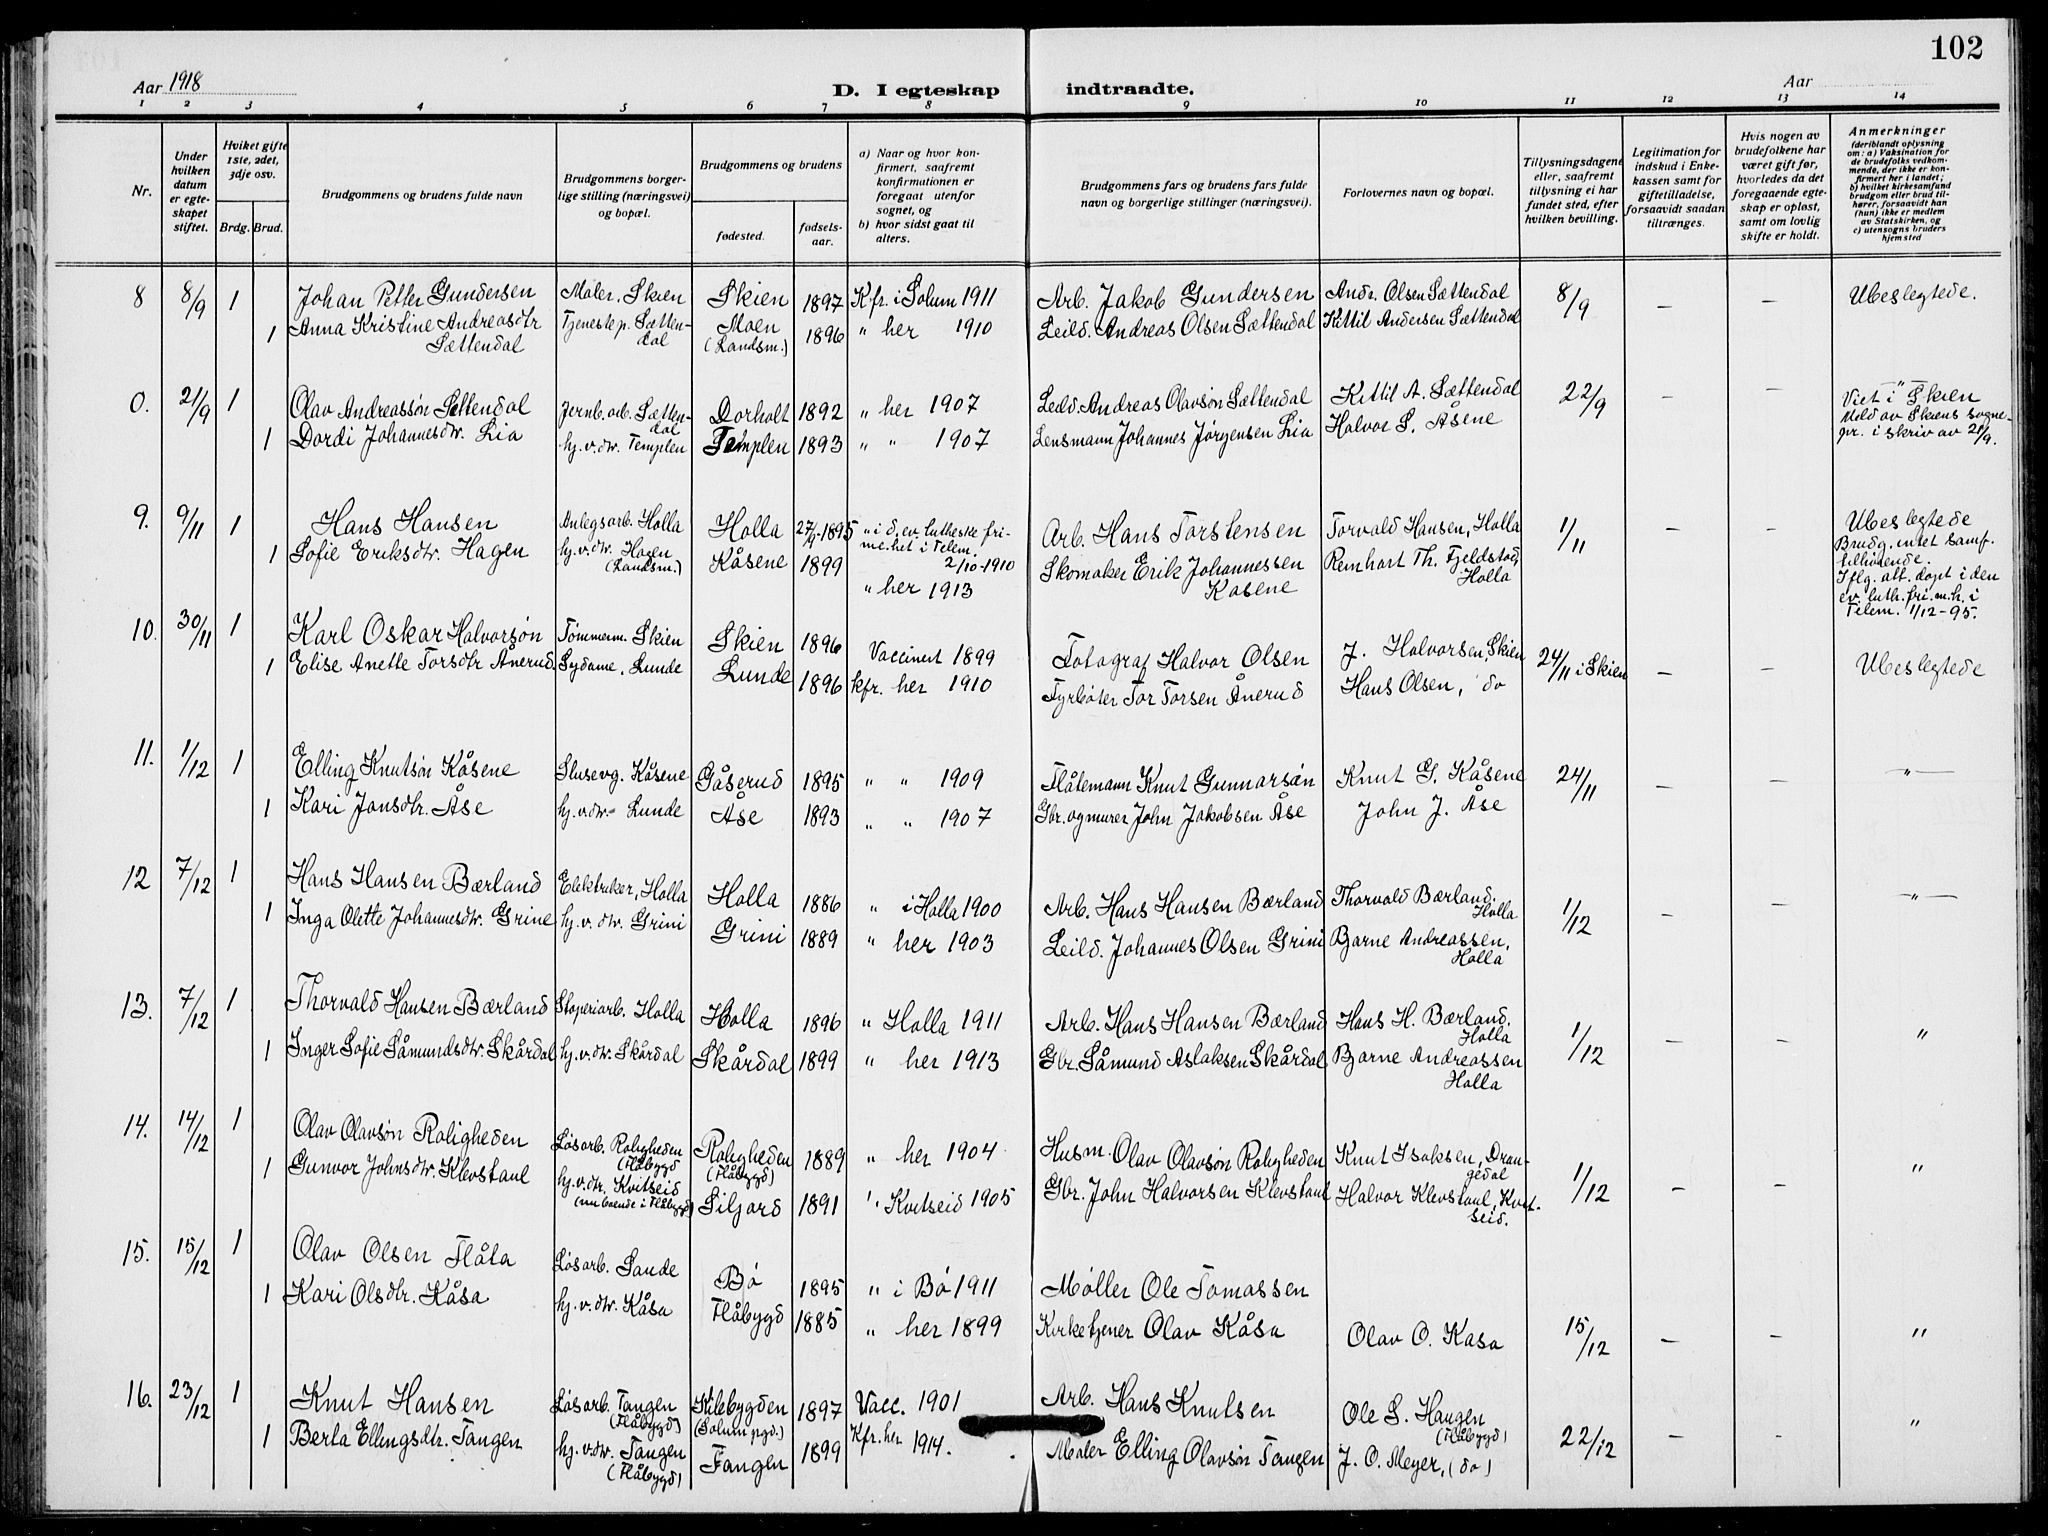 102
Aar 1918
D. I egteskap indtraadte.
Aar
1 2 3 4 5 6 7 8 9 10 11 12 13 14
Nr.
Under hvilken datum er egteskapet stiftet.
Hviket gifte 1ste, 2det, 3dje osv.
Brdg. Brud.
Brudgommens og brudens fulde navn
Brudgommens borgerlige stilling (næringsvei) og bopæl.
Brudgommens og brudens
fødested.
fødselsaar.
a) Naar og hvor konfirmert, saafremt konfirmationen er foregaat utenfor sognet, og
b) hvor sidst gaat til alters.
Brudgommens fars og brudens fars fulde navn og borgerlige stillinger (næringsvei).
Forlovernes navn og bopæl.
Tillysningsdagene eller, saafremt tillysning ei har fundet sted, efter hvilken bevilling.
Legitimation for indskud i Enkekassen samt for giftetilladelse, forsaavidt saadan tiltrænges.
Hvis nogen av brudefolkene har været gift før, hvorledes da det foregaaende egteskap er opløst, samt om lovlig skifte er holdt.
Anmerkninger
(deriblandt oplysning om: a) Vaksination for de brudefolks vedkommende, der ikke er konfirmert her i landet; b) hvilket kirkesamfund brudgom eller brud tilhører, forsaavidt han (hun) ikke er medlem av Statskirken, og c) utensogns bruders hjemsted
8 8/9 1 Johan Petter Gundersen Maler, Skien Skien 1897 Kfr. i Solum 1911 Arb. Jakob Gundersen Andr. Olsen Sættendal 8/9 — — Ubeslegtede.
1 Anna Kristine Andreasdtr Sættendal Tjenestep. Sættendal Moen (Landsm.) 1896 " her 1910 Leild. Andreas Olsen Sættendal Kittil Andersen Sættendal
0. 21/9 1 Olav Andreassøn Settendal Jernb.arb. Sættendal Dorholt 1892 " her 1907 Leild. Andreas Olavsøn Sættendal Kittil A. Sættendal 22/9 — — —"—
Viet i Skien
Meld av Skiens sognepr. i skriv av 21/9.
1 Dordi Johannesdtr. Lia hj.v.dtr. Templen Templen 1893 " " 1907 Lensmann Johannes Jørgensen Lia Halvor S. Åsene
9. 9/11 1 Hans Hansen Anlegsarb. Holla Holla 27/9-1895 " i d. ev. lutherske frimenihet i Telem. 2/10-1910 Arb. Hans Torstensen Torvald Hansen, Holla 1/11 — — Ubeslegtede
Brudg. intet samf. tilhørende.
Iflg. att. døpt i den ev. luth. fri.m.h. i Telem. 1/12-95.
1 Sofie Eriksdtr. Hagen hj.v.dtr. Hagen (Landsm.) Kåsene 1899 " her 1913 Skomaker Erik Johannessen Kåsene Reinhart Th. Fjeldstad, Holla
10. 30/11 1 Karl Oskar Halvorsøn Tømmerm. Skien Skien 1896 Vaccinert 1899 Fotograf Halvor Olsen J. Halvorsen, Skien 24/11 i Skien — — Ubeslegtede
1 Elise Anette Torsdtr Ånerud Sydame, Lunde Lunde 1896 kfr. her 1910 Fyrbøter Tor Torsen Ånerud Hans Olsen, do
11. 1/12 1 Elling Knutsøn Kåsene Slusevg. Kåsene Gåserud 1895 " " 1909 Flåtemann Knut Gunnarsøn Knut G. Kåsene 24/11 — — —"—
1 Kari Jonsdtr. Åse hj.v.dtr. Lunde Åse 1893 " " 1907 Gbr. og murer John Jakobsen Åse John J. Åse
12 7/12 1 Hans Hansen Bærland Elektriker, Holla Holla 1886 " i Holla 1900 Arb. Hans Hansen Bærland Thorvald Bærland, Holla 1/12 — — —"—
1 Inga Olette Johannesdtr. Grine hj.v.dtr. Grini Grini 1889 " her 1903 Leild. Johannes Olsen Grini Bjarne Andreassen, Holla
13. 7/12 1 Thorvald Hansen Bærland Sloperiarb. Holla Holla 1896 " Holla 1911 Arb. Hans Hansen Bærland Hans H. Bærland, Holla 1/12 — — "
1 Inger Sofie Såmundsdtr. Skårdal hj.v.dtr. Skårdal Skårdal 1899 " her 1913 Gbr. Såmund Aslaksen Skårdal Bjarne Andreassen Holla
14. 14/12 1 Olav Olavsøn Roligheden Løsarb. Roligheden (Flåbygd Roligheden (Flåbygd) 1889 " her 1904 Husm. Olav Olavsøn Roligheden Knut Isaksen, Drangedal 1/12 — — "
1 Gunvor Johnsdtr. Klevstaul hj.v.dtr. Kvitseid (nu boende i Flåbygd) Siljord 1891 " Kvitseid 1905 Gbr. John Halvorsen Klevstaul Halvor Klevstaul, Kvitseid.
15. 15/12 1 Olav Olsen Flåta Løsarb. Sande Bø 1895 " i Bø 1911 Møller Ole Tomassen
1 Kari Olsdtr. Kåsa hj.v.dtr. Kåsa Flåbygd 1885 " her 1899 Kirketjener Olav Kåsa Olav O. Kasa 15/12 — — "
16. 23/12 1 Knut Hansen Løsarb. Tangen (Flåbygd) Kilebygden (Solum pgd.) 1897 Vacc. 1901 Arb. Hans Knutsen Ole S. Haugen (Flåbygd) 22/12 — — "
1 Berta Ellingsdtr. Tangen hj.v.dtr. Tangen (Flåbygd) Tangen 1899 Kfr. her 1914. Maler Elling Olavsøn Tangen J. O. Meyer, (do)